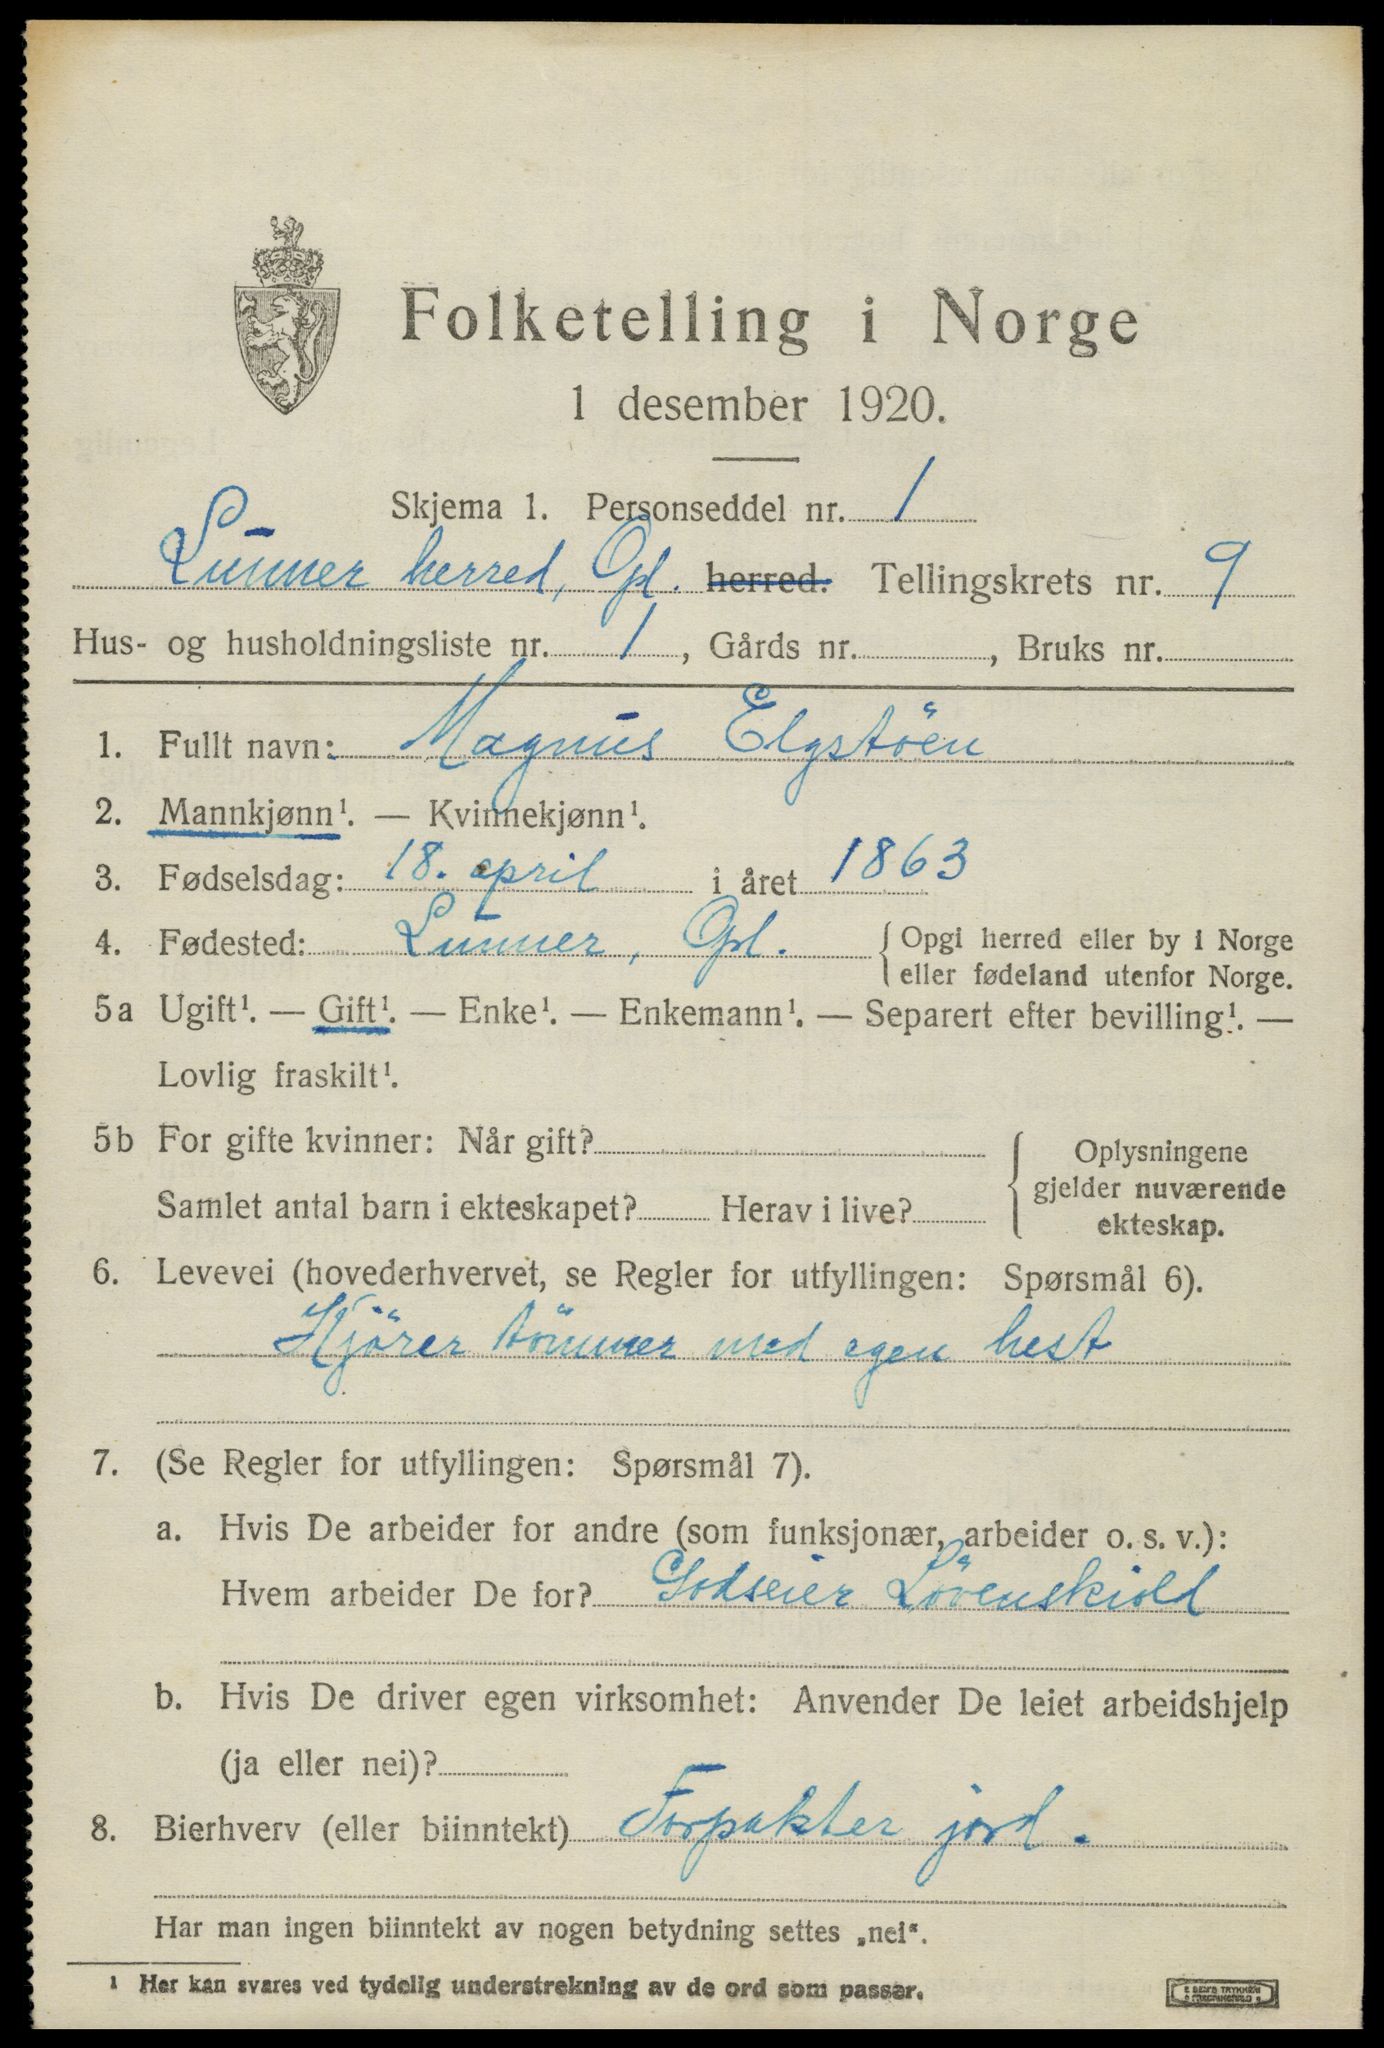 Folketelling i Norge
1 desember 1920.
Skjema 1. Personseddel nr. 1
Lunner herred, Opl. herred. Tellingskrets nr. 9
Hus- og husholdningsliste nr. 1, Gårds nr. , Bruks nr.
1. Fullt navn: Magnus Elgstöen
2. Mannkjønn¹. — Kvinnekjønn¹.
3. Fødselsdag: 18. april i året 1863
4. Fødested: Lunner, Opl. { Opgi herred eller by i Norge
eller fødeland utenfor Norge.
5a Ugift¹. — Gift¹. — Enke¹. — Enkemann¹. — Separert efter bevilling¹. —
Lovlig fraskilt¹.
5b For gifte kvinner: Når gift? { Oplysningene
gjelder nuværende
Samlet antal barn i ekteskapet? Herav i live? ekteskap.
6. Levevei (hovederhvervet, se Regler for utfyllingen: Spørsmål 6).
Kjörer tömmer med egen hest
7. (Se Regler for utfyllingen: Spørsmål 7).
a. Hvis De arbeider for andre (som funksjonær, arbeider o. s. v.):
Hvem arbeider De for? Godseier Lövenskiold
b. Hvis De driver egen virksomhet: Anvender De leiet arbeidshjelp
(ja eller nei)?
8. Bierhverv (eller biinntekt) Forpakter jord.
Har man ingen biinntekt av nogen betydning settes „nei".
¹ Her kan svares ved tydelig understrekning av de ord som passer.